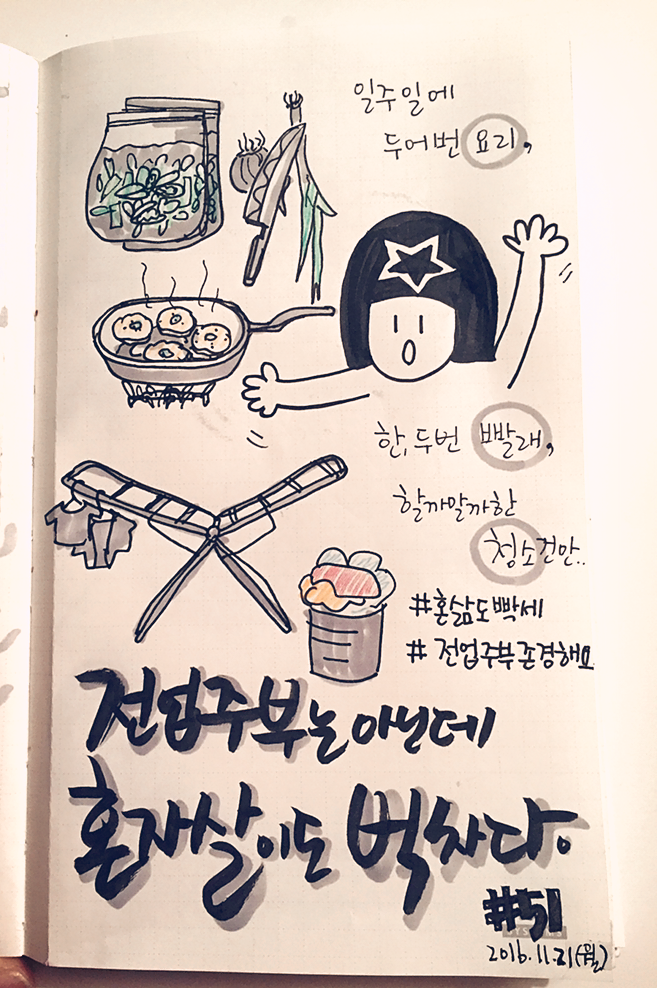 일주일에
두어번 요리,
한, 두번 빨래,
할까말까한
청소건만..
#혼삶도빡세
# 전업주부존경해요
전업주부는 아닌데
혼자살이도 벅차다.
#51
2016.11.21(월)